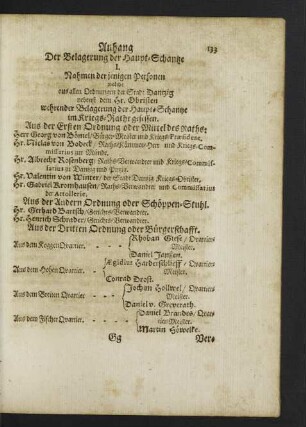 Anhang
133
Der Belagerung der Haupt-Schantze
I.
Nahmen der jenigen Personen
welche
aus allen Ordnungen der Stadt Dantzig
nebenst dem Hr. Obristen
wehrender Belagerung der Haupt-Schantze
im Kriegs-Raht gesessen.
Aus der Ersten Ordnung oder Mittel des Rahts:
Herr Georg von Bömeln/ Bürger-Meister und Kriegs-Præsident,
Hr. Niclas von Bodeck/ Rahts/Kämmer-Herr und Kriegs-Com-
missarius zur Münde.
Hr. Albrecht Rosenberg/ Rahts-Verwandter und Kriegs/Commis-
sarius zu Dantzig und Preüß.
Hr. Valentin von Winter/ der Stadt Dantzig Kriegs-Obrister.
Hr. Gabriel Kromhausen/ Rahts-Verwandter und Commissarius
der Artollerie.
Aus der Andern Ordnung oder Schöppen-Stuhl.
Hr. Gerhard Bartsch/ Gerichts-Verwandter.
Hr. Henrich Schrader/ Gerichts-Verwandter.
Aus der Dritten Ordnung oder Bürgerschafft.
Aus dem Koggen Qvartier. - - - Giese/ Qvartier-
Meister.
Daniel Janson.
Aus dem Hohen Qvartier. - - - Ægidius Qvartier-
Meister.
Conrad Drost.
Aus dem Breiten Qvartier - - - Jochim Hollwel/ Qvartier-
Meister.
Daniel v. Greverath.
Aus dem Fischer Qvartier. - - - Daniel Brandes/ Qvar-
tier-Meister.
Martin Höwelke.
Gg
Ver-